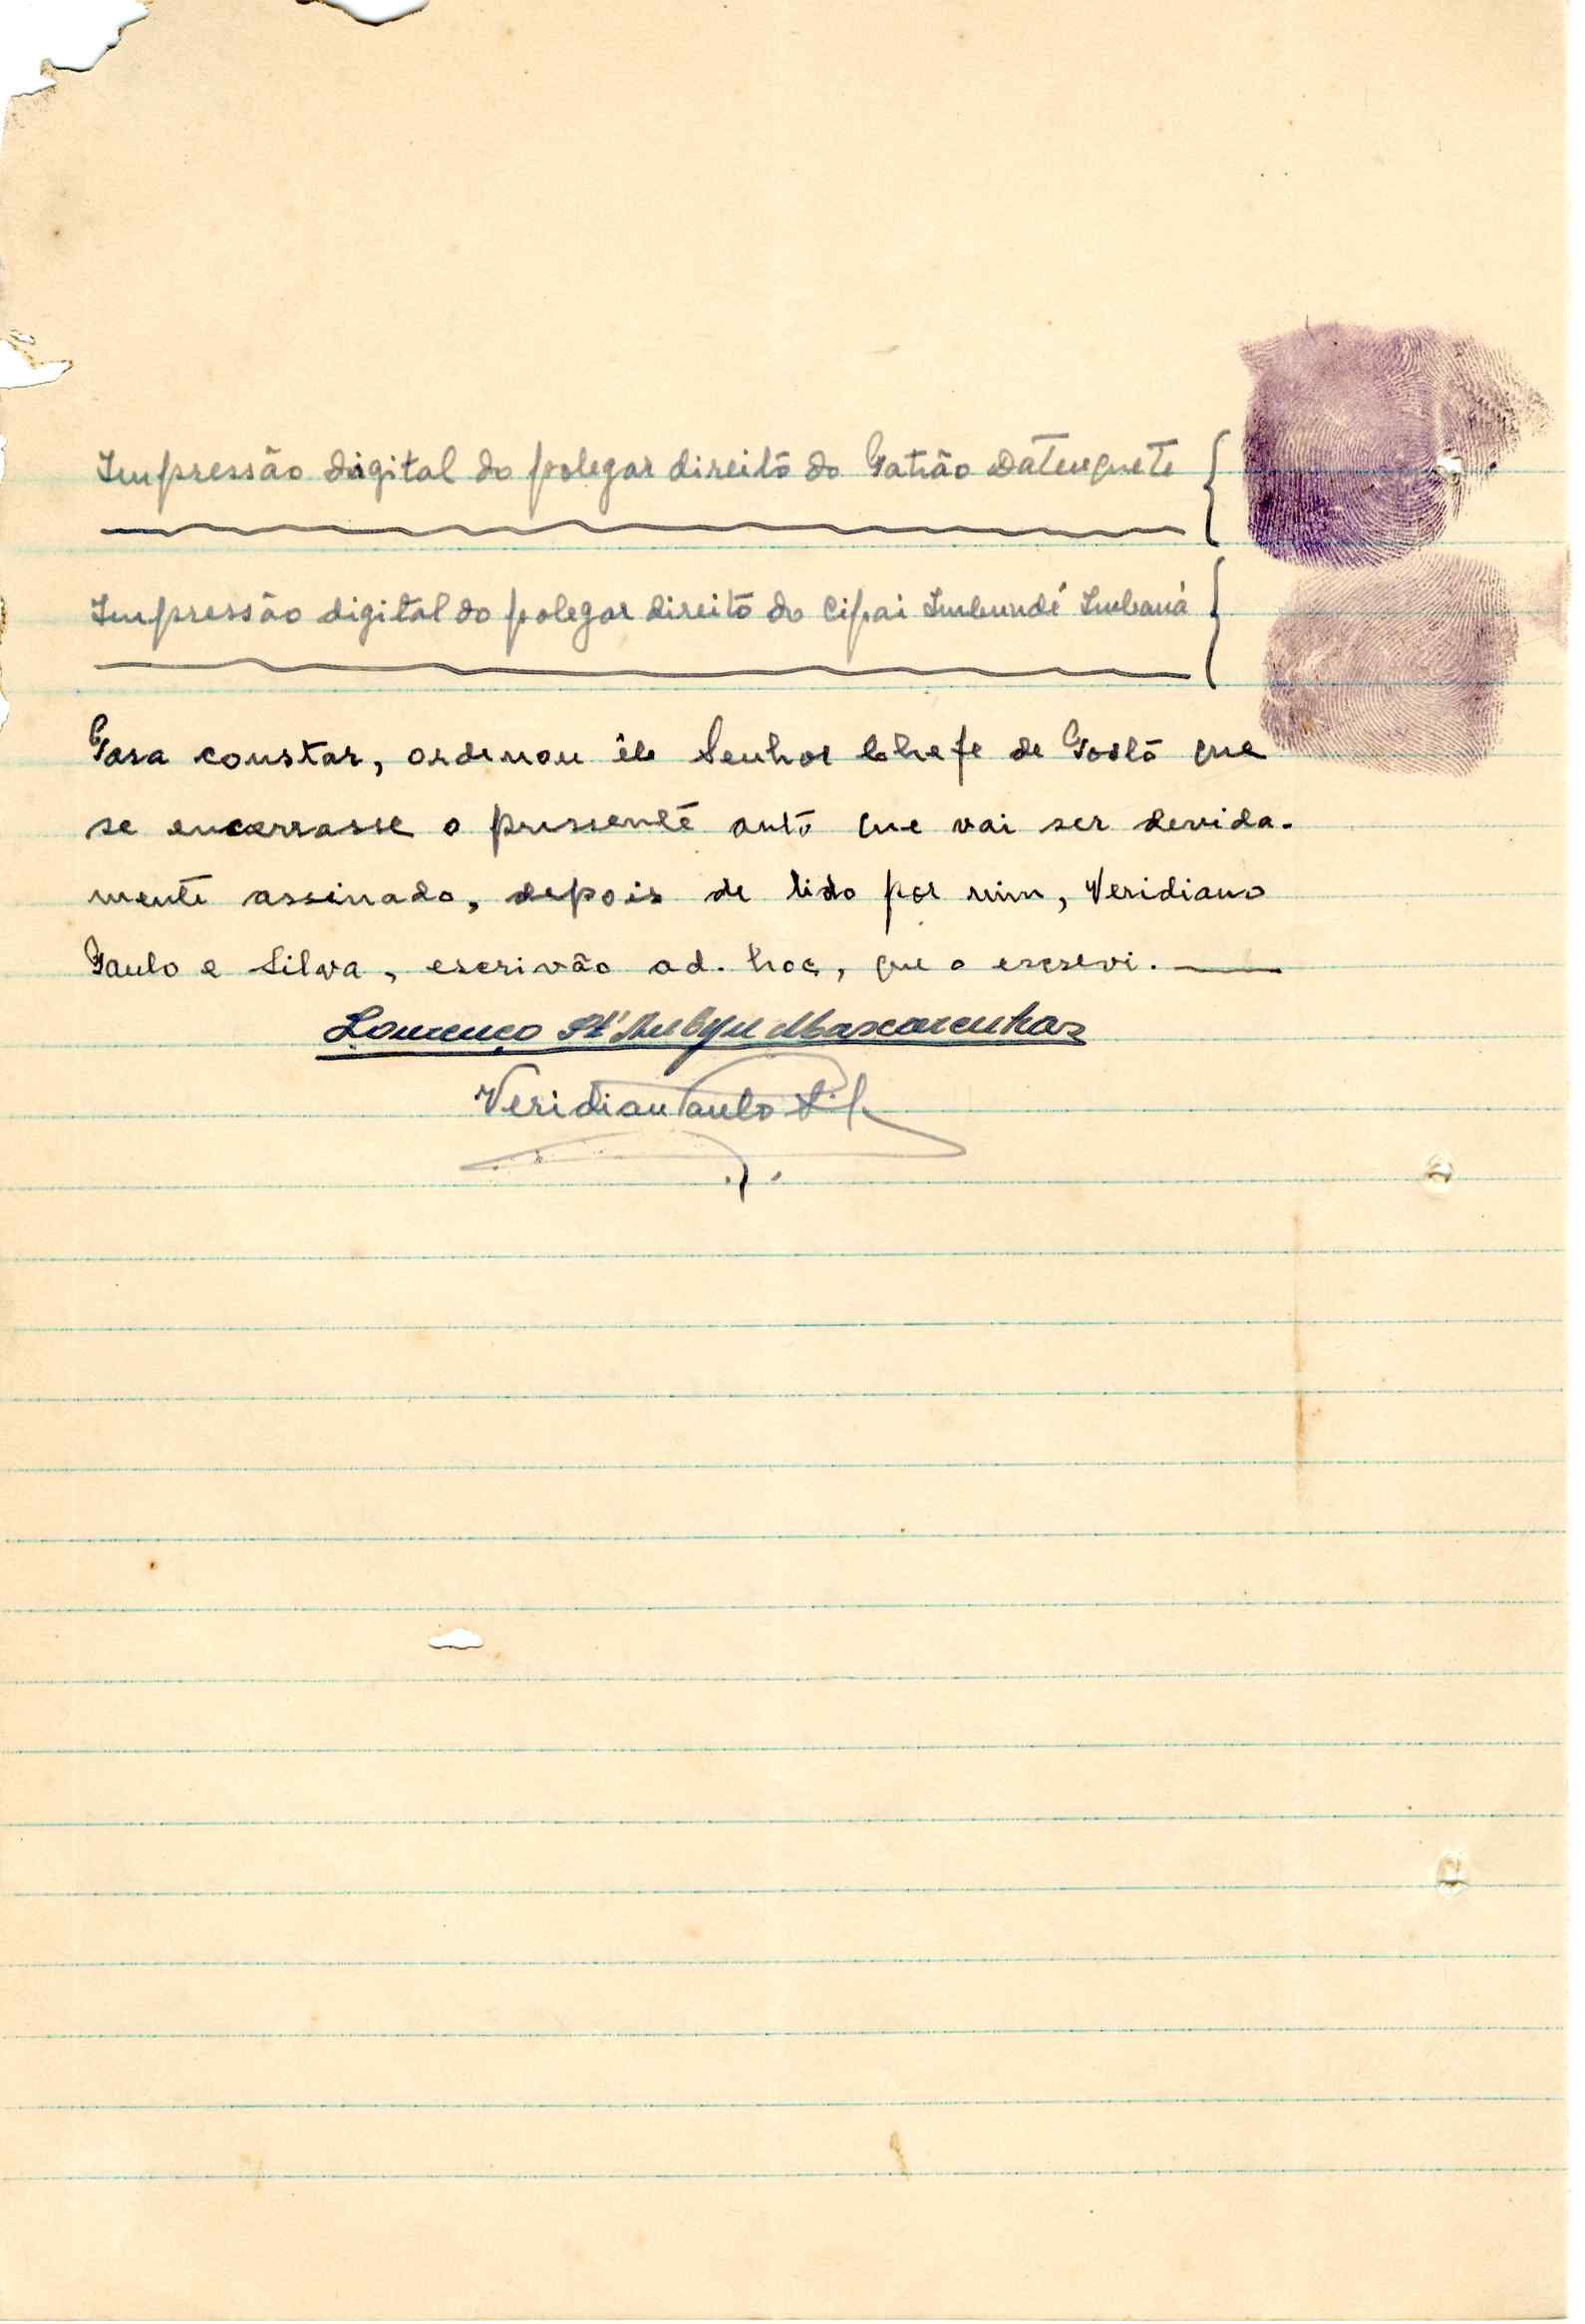 Impressão digital do polegar direito do Patrão Datenquete
Impressão digital do polegar direito do Cipai Imbundé Imbaná
Para constar, ordenou êle Senhor Chefe de Posto que
se encerrasse o presente auto que vai ser devida-
mente assinado, depois de lido por mim, Veridiano
Paulo e Silva, escrivão ad-hoc, que o escrevi.
Lourenço St'Aubyn Mascarenhas
Veridian Paulo Sil